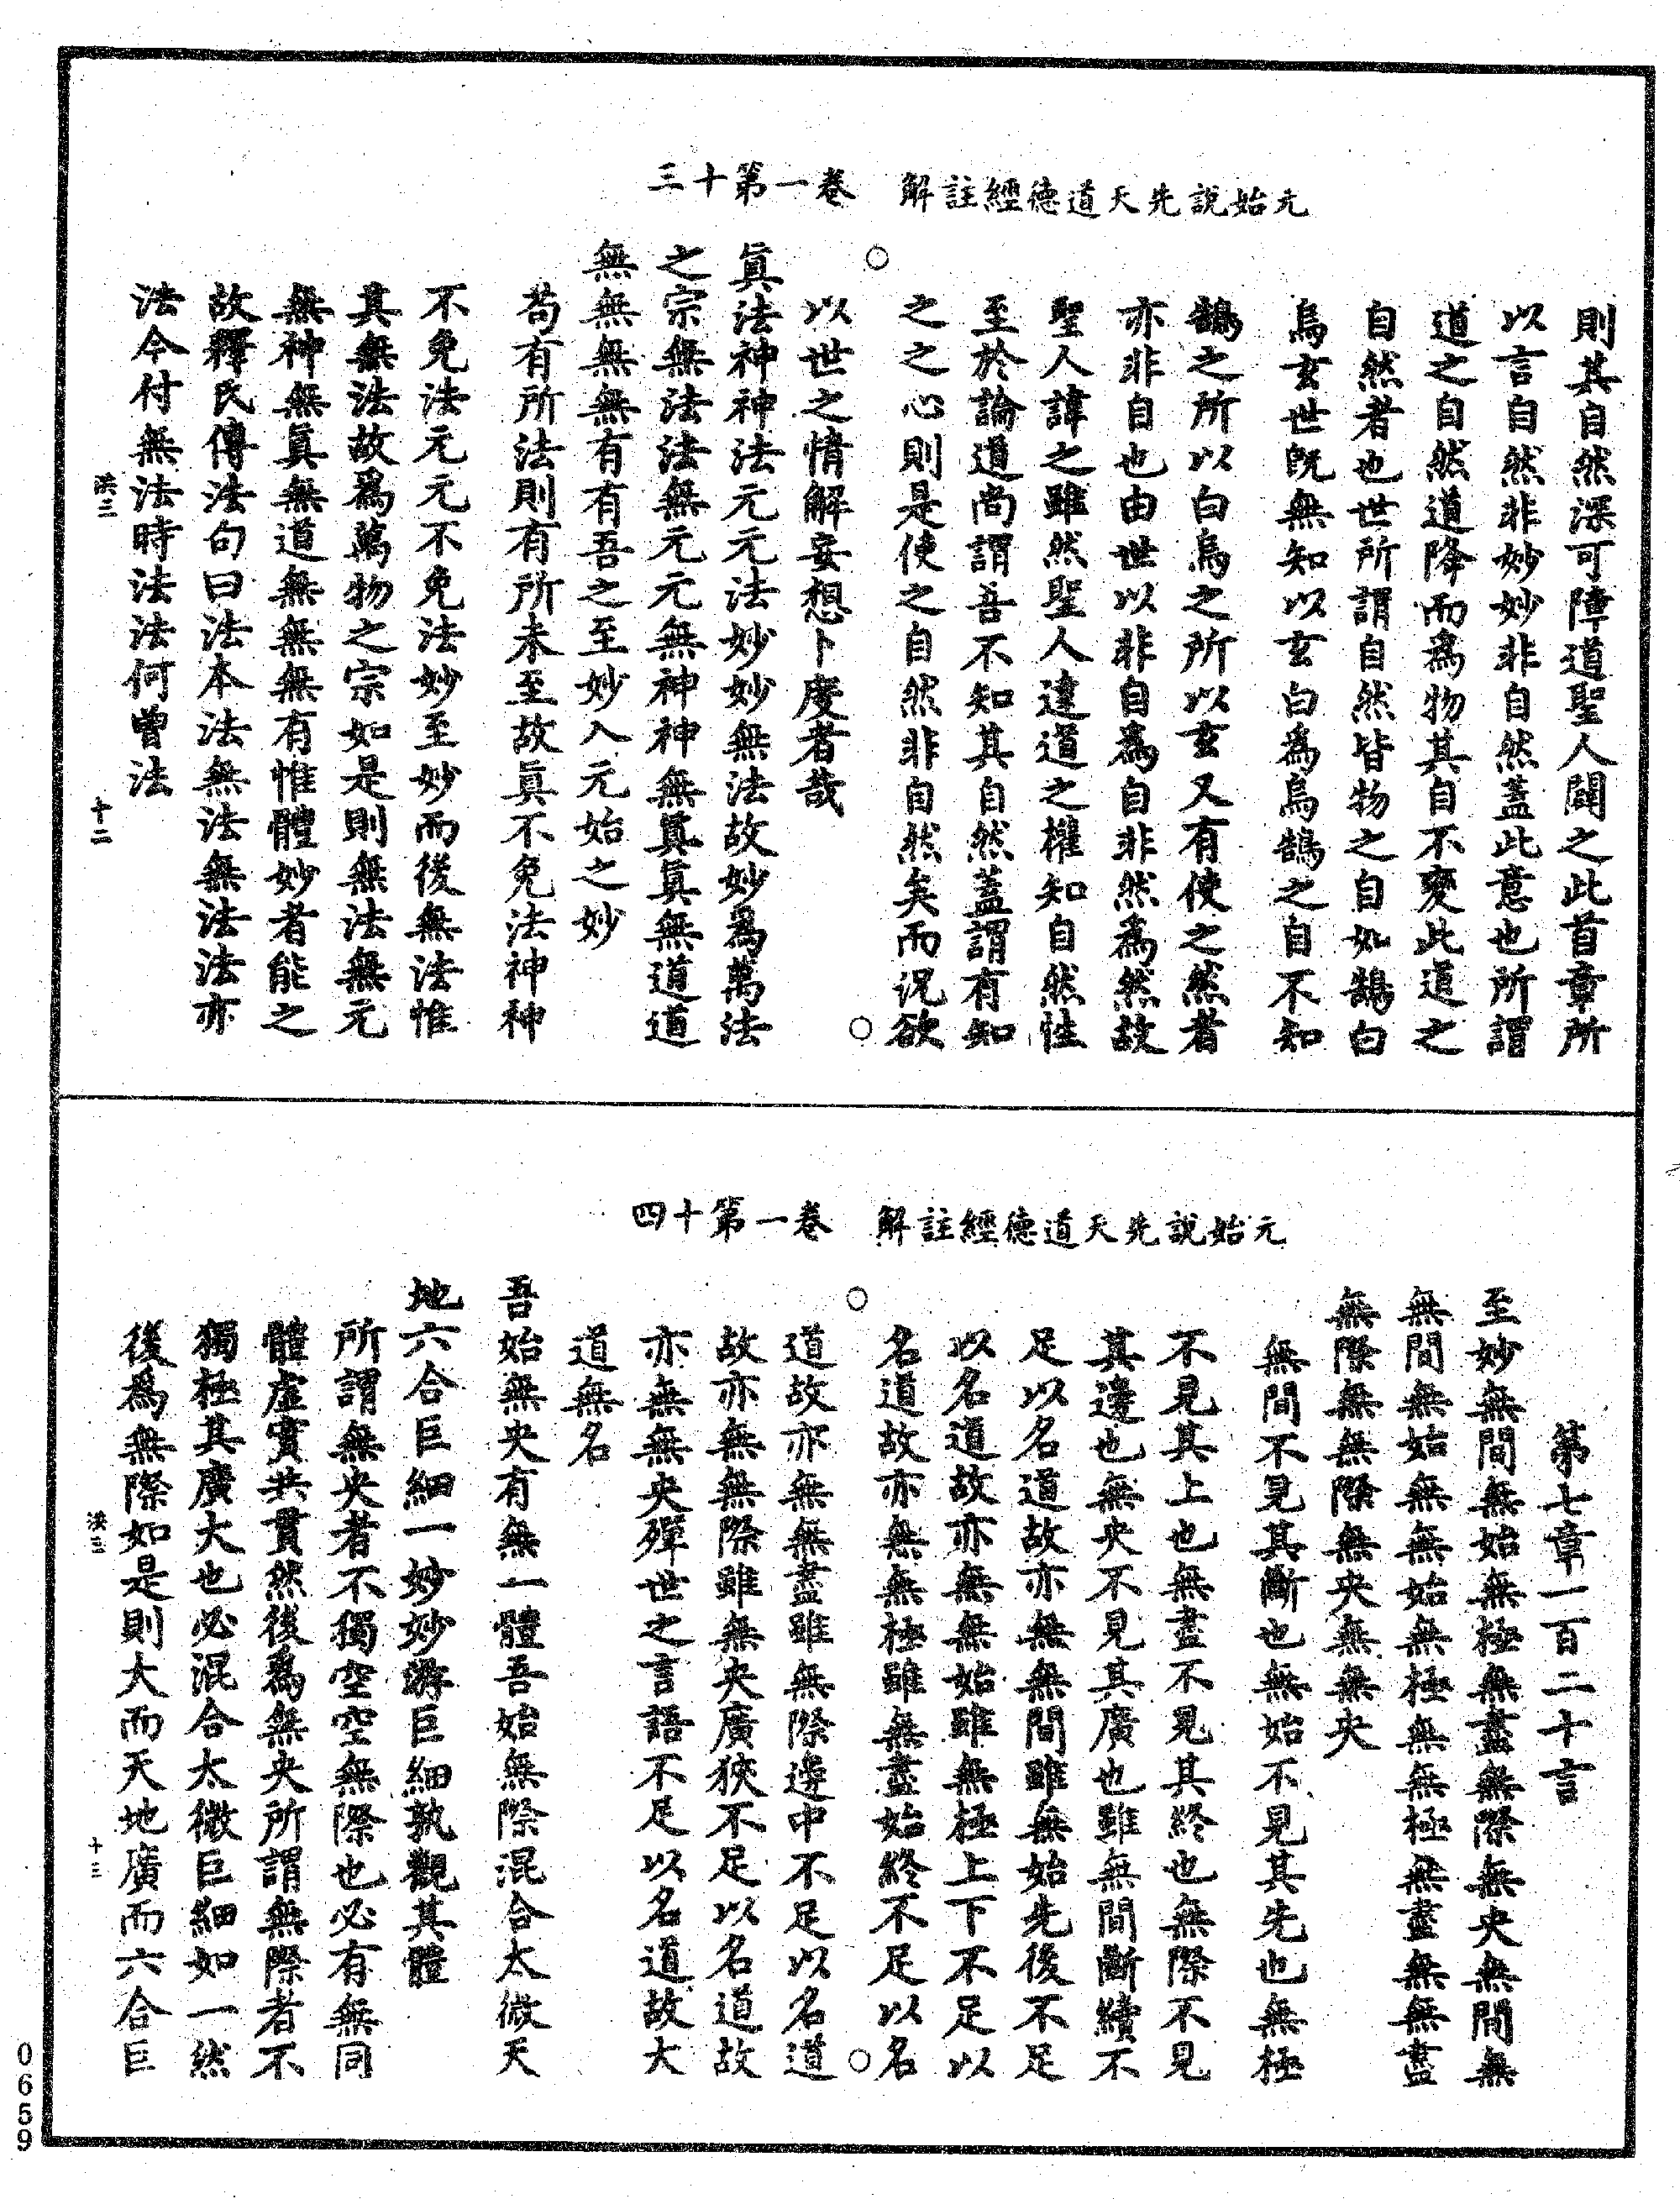 元始說先天道德經註解　卷一第十三
則其自然深可障道聖人闢之此首章所
以言自然非妙妙非自然蓋此意也所謂
道之自然道降而爲物其自不變此道之
自然者也世所謂自然皆物之自如鵠白
烏玄世旣無知以玄白爲烏鵠之自不知
鵠之所以白烏之所以玄又有使之然者
亦非自也由世以非自爲自非然爲然故
聖人諱之雖然聖人達道之權知自然性
至於論道尚謂吾不知其自然蓋謂有知
之之心則是使之自然非自然矣而況欲
○
以世之情解妄想卜度者哉
○
眞法神神法元元法妙妙無法故妙爲萬法
之宗無法法無元元無神神無眞眞無道道
無無無無有有吾之至妙入元始之妙
苟有所法則有所未至故眞不免法神神
不免法元元不免法妙至妙而後無法惟
其無法故爲萬物之宗如是則無法無元
無神無眞無道無無無有惟體妙者能之
故釋氏傳法句曰法本法無法無法法亦
法今付無法時法法何曾法
洪三　十二
元始說先天道德經註解　卷一第十四
第七章一百二十言
至妙無間無始無極無盡無際無央無間無
無間無始無無始無極無無極無盡無無盡
無際無無際無央無無央
無間不見其斷也無始不見其先也無極
不見其上也無盡不見其終也無際不見
其邊也無央不見其廣也雖無間斷續不
足以名道故亦無無間雖無始先後不足
以名道故亦無無始雖無極上下不足以
名道故亦無無極雖無盡始終不足以名
○
道故亦無無盡雖無際邊中不足以名道
○
故亦無無際雖無央廣狹不足以名道故
亦無無央殫世之言語不足以名道故大
道無名
吾始無央有無一體吾始無際混合太微天
地六合巨細一妙妙游巨細孰觀其體
所謂無央者不獨空空無際也必有無同
體虛實共貫然後爲無央所謂無際者不
獨極其廣大也必混合太微巨細如一然
後爲無際如是則大而天地廣而六合巨
洪三　十三
0659